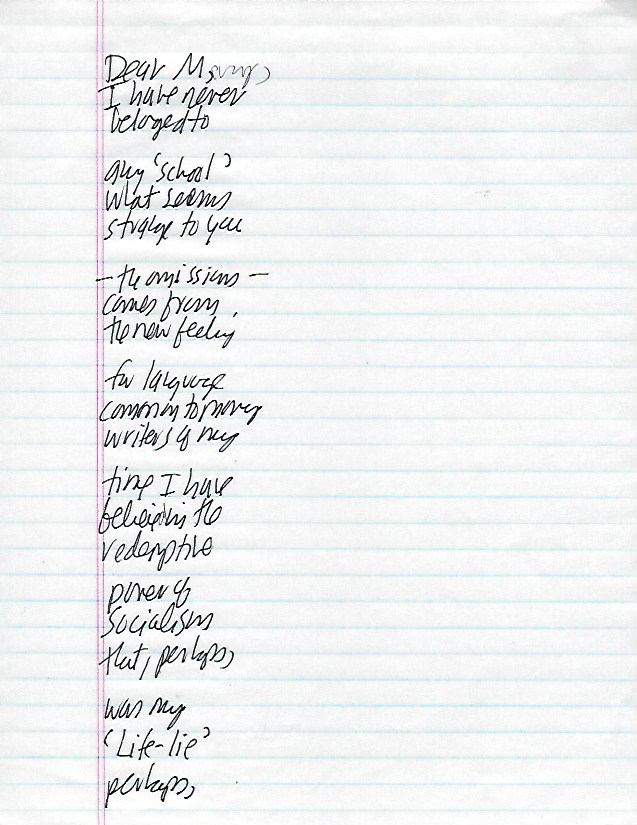 Dear
I have never
beloged to
any 'school'
what seems
strange to you
—the omissions—
comes from,
the new feeling
for language
common to many
writers of my
time I have
believed in the
redemptive
power of
Socialism
that, perhaps,
was my
'Life-lie'
perhaps,